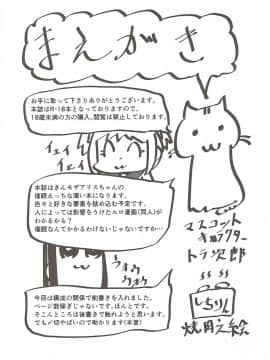 まえがき
お手に取って下さりありがとうございます。
本誌はR-18本となっておりますので、
18歳未満の方の購入、閲覧は禁止しております。
イェイ
イェイ
本誌はきんモザアリスちゃんの
催眠えっちな薄い本になります。
色々と好きな要素を詰め込む予定です。
人によっては影響をうけたエロ漫画(同人)が
わかるかも?
催眠なんてかかるわけないじゃないですか…
マスコット
キャラクター
トラ次郎
ウォウ
ウォウ
今回は構成の関係で前書きを入れました。
ページ数稼ぎじゃないです。ほんとです。
そこんところは後書きで触れようと思います。
でも〆切やばいので助かります(本音)
しちりん